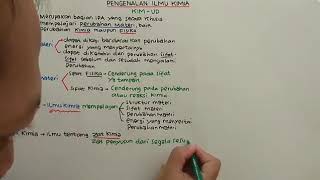 PENGENALAN ILMU KIMIA
KIM-UD
Merupakan bagian IPA yang secara khusus
mempelajari perubahan Materi, baik
perubahan Kimia maupun Fisika
dapat dikaji berdasarkan perubahan
energi yang menyertainya
dapat dikenali dari perubahan sifat-
sifat sebelum dan sesudah mengalami
perubahan.
Sifat Fisika → Cenderung pada sifat
Sifat Kimia → Cenderung pada perubahan
atau reaksi kimia
Ilmu Kimia mempelajari
struktur materi
sifat materi
perubahan materi
energi yang menyertai
perubahan materi
Kimia → ilmu tentang zat kimia
zat penyusun dari segala sesu